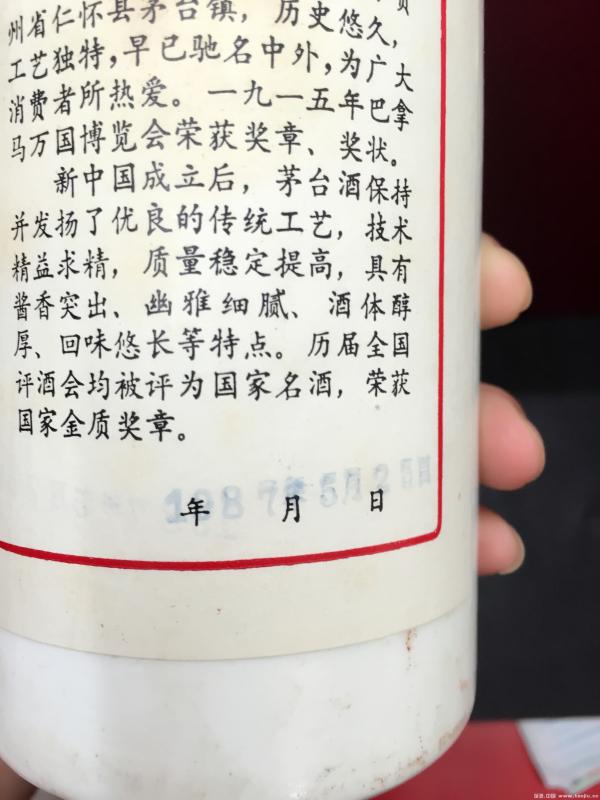 州省仁怀县茅台镇，历史悠久，
工艺独特，早已驰名中外，为广大
消费者所热爱。一九一五年巴拿
马万国博览会荣获奖章、奖状。
新中国成立后，茅台酒保持
并发扬了优良的传统工艺，技术
精益求精，质量稳定提高，具有
酱香突出、幽雅细腻、酒体醇
厚、回味悠长等特点。历届全国
评酒会均被评为国家名酒，荣获
国家金质奖章。
1987年5月25日
年 月 日